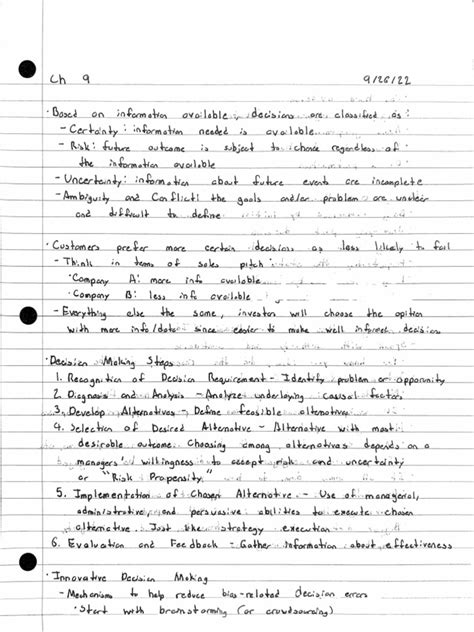 Ch 9 9/26/22
· Based on information available, decisions are classified as:
- Certainty: information needed is available
- Risk: future outcome is subject to chance regardless of
the information available
- Uncertainty: information about future events are incomplete
- Ambiguity and Conflict: the goals and/or problem are unclear
and difficult to define
· Customers prefer more certain decisions as less likely to fail
- Think in terms of sales pitch
· Company A: more info available
· Company B: less info available
- Everything else the same, investor will choose the option
with more info/data since easier to make well informed decision
· Decision Making Steps
1. Recognition of Decision Requirement - Identify problem or opportunity
2. Diagnosis and Analysis - Analyze underlaying causal factors
3. Develop Alternatives - Define feasible alternatives
4. Selection of Desired Alternative - Alternative with most
desirable outcome. Choosing among alternatives depends on a
managers' willingness to accept risk and uncertainty
or "Risk Propensity"
5. Implementation of Chosen Alternative - Use of managerial,
administrative, and persuasive abilities to execute chosen
alternative. Just like strategy execution
6. Evaluation and Feedback - Gather information about effectiveness
· Innovative Decision Making
- Mechanisms to help reduce bias-related decision errors
· Start with brainstorming (or crowdsourcing)